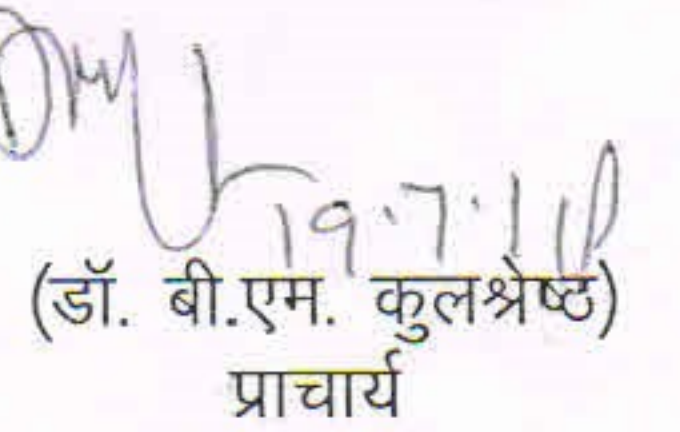 19.7.1
(डॉ. बी.एम. कुलश्रेष्ठ)
प्राचार्य